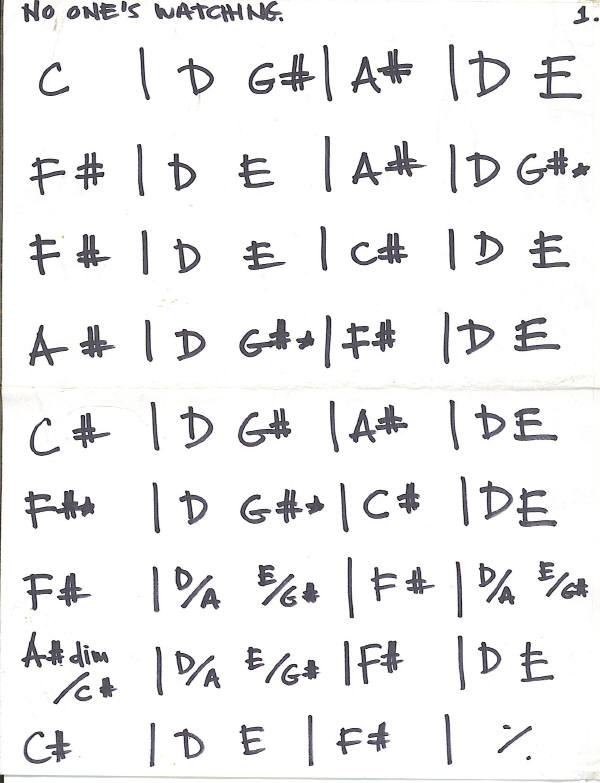 NO ONE'S WATCHING. 1.
C | D G# | A# | D E
F# | D E | A# | D G#*
F# | D E | C# | D E
A# | D G#* | F# | D E
C# | D G# | A# | D E
F#* | D G#* | C# | D E
F# | D/A E/G# | F# | D/A E/G#
A#dim/C# | D/A E/G# | F# | D E
C# | D E | F# | %